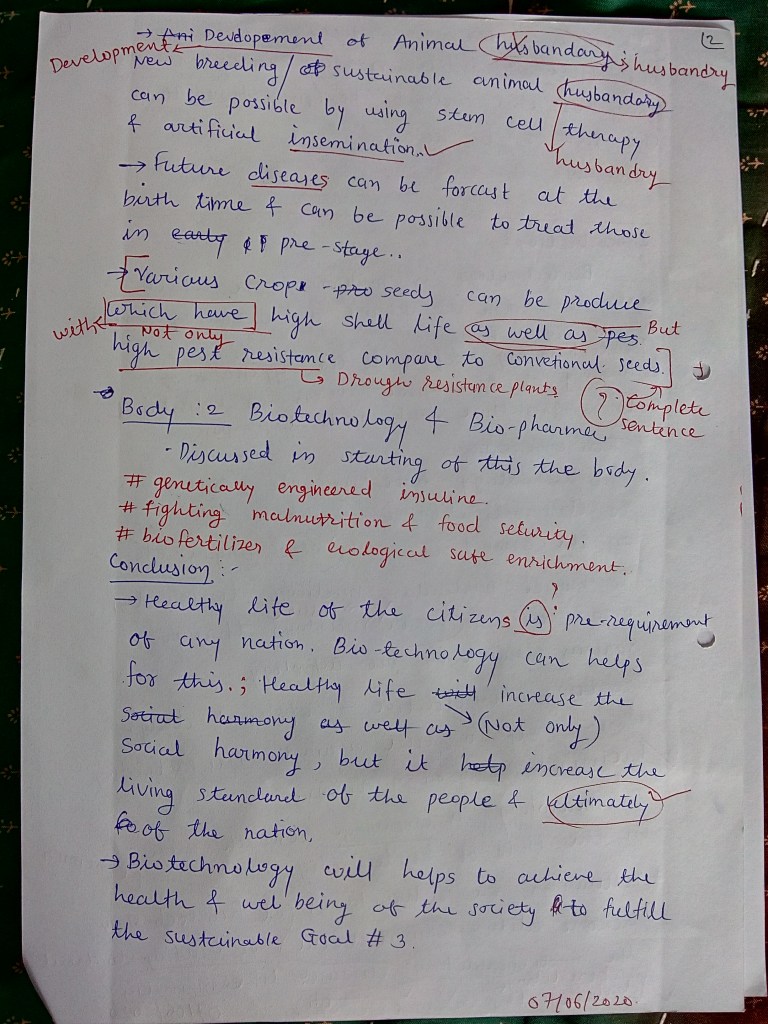 12
→ Ani Devdopement of Animal husbandary → husbandry
Development
New breeding / of sustainable animal husbandary
can be possible by using stem cell therapy
& artificial insemination. ✓
husbandry
→ Future diseases can be forcast at the
birth time & can be possible to treat those
in early pre-stage..
→ [Various crop - pro seeds can be produce
with ← which have high shell life as well as pes. But
Not only
high pest resistance compare to convetional seeds.]
↳ Drough resistance plants
? Complete
sentence
Body : 2 Biotechnology & Bio-pharma
- Discussed in starting of this the body.
# genetically engineered insuline.
# fighting malnutrition & food security.
# biofertilizer & ecological safe enrichment.
Conclusion :-
?
→ Healthy life of the citizens is pre-requirement
of any nation. Bio-technology can helps
for this. ; Healthy life will increase the
Social harmony as well as → (Not only)
Social harmony, but it help increase the
living standard of the people & ultimately ✓
of the nation,
→ Biotechnology will helps to achieve the
health & wel being of the society to fulfill
the sustainable Goal # 3.
07/06/2020.